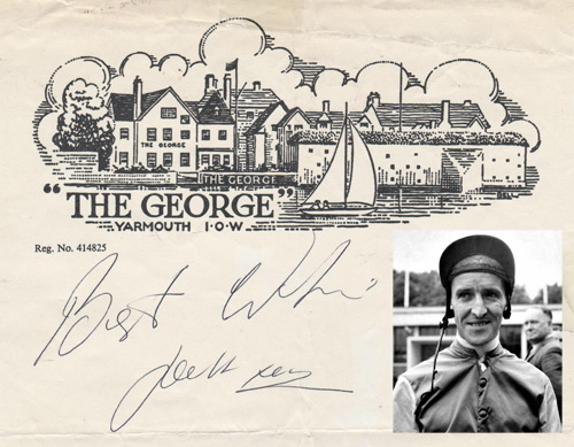 THE GEORGE
THE GEORGE
"THE GEORGE"
YARMOUTH I·O·W.
Reg. No. 414825
Best Wishes